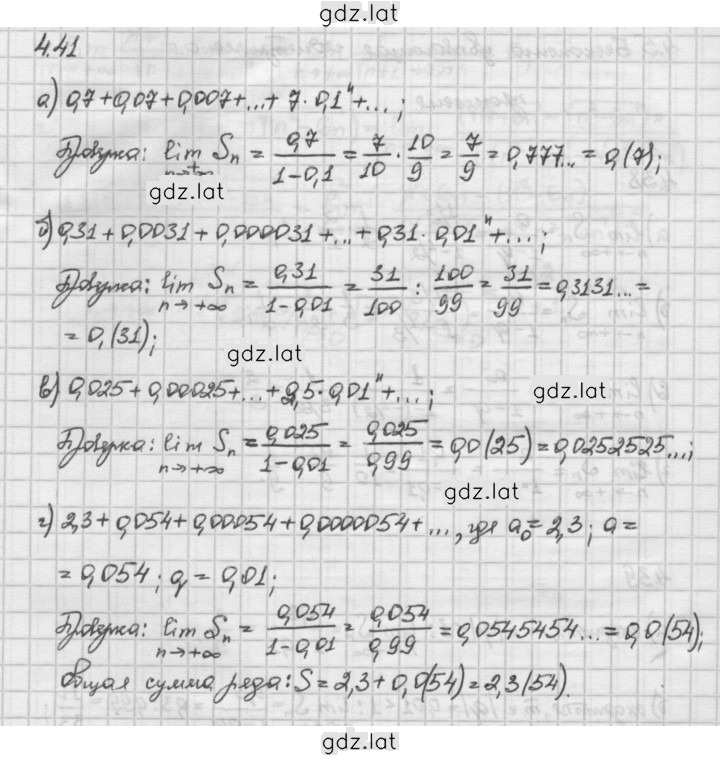 gdz.lat
4.41
а) 0,7+0,07+0,007+...+7·0,1ⁿ+...;
Проверка: lim Sₙ = 0,7/(1-0,1) = 7/10 · 10/9 = 7/9 = 0,777... = 0,(7);
n→+∞
gdz.lat
б) 0,31+0,0031+0,000031+...+0,31·0,01ⁿ+...;
Проверка: lim Sₙ = 0,31/(1-0,01) = 31/100 : 100/99 = 31/99 = 0,3131... =
n→+∞
= 0,(31);
gdz.lat
в) 0,025+0,00025+...+2,5·0,01ⁿ+...;
gdz.lat
Проверка: lim Sₙ = 0,025/(1-0,01) = 0,025/0,99 = 0,0(25) = 0,0252525...;
n→+∞
gdz.lat
г) 2,3+0,054+0,00054+0,0000054+..., где a₀=2,3; a=
= 0,054; q = 0,01;
Проверка: lim Sₙ = 0,054/(1-0,01) = 0,054/0,99 = 0,0545454... = 0,0(54);
n→+∞
Общая сумма ряда: S = 2,3+0,0(54) = 2,3(54).
gdz.lat